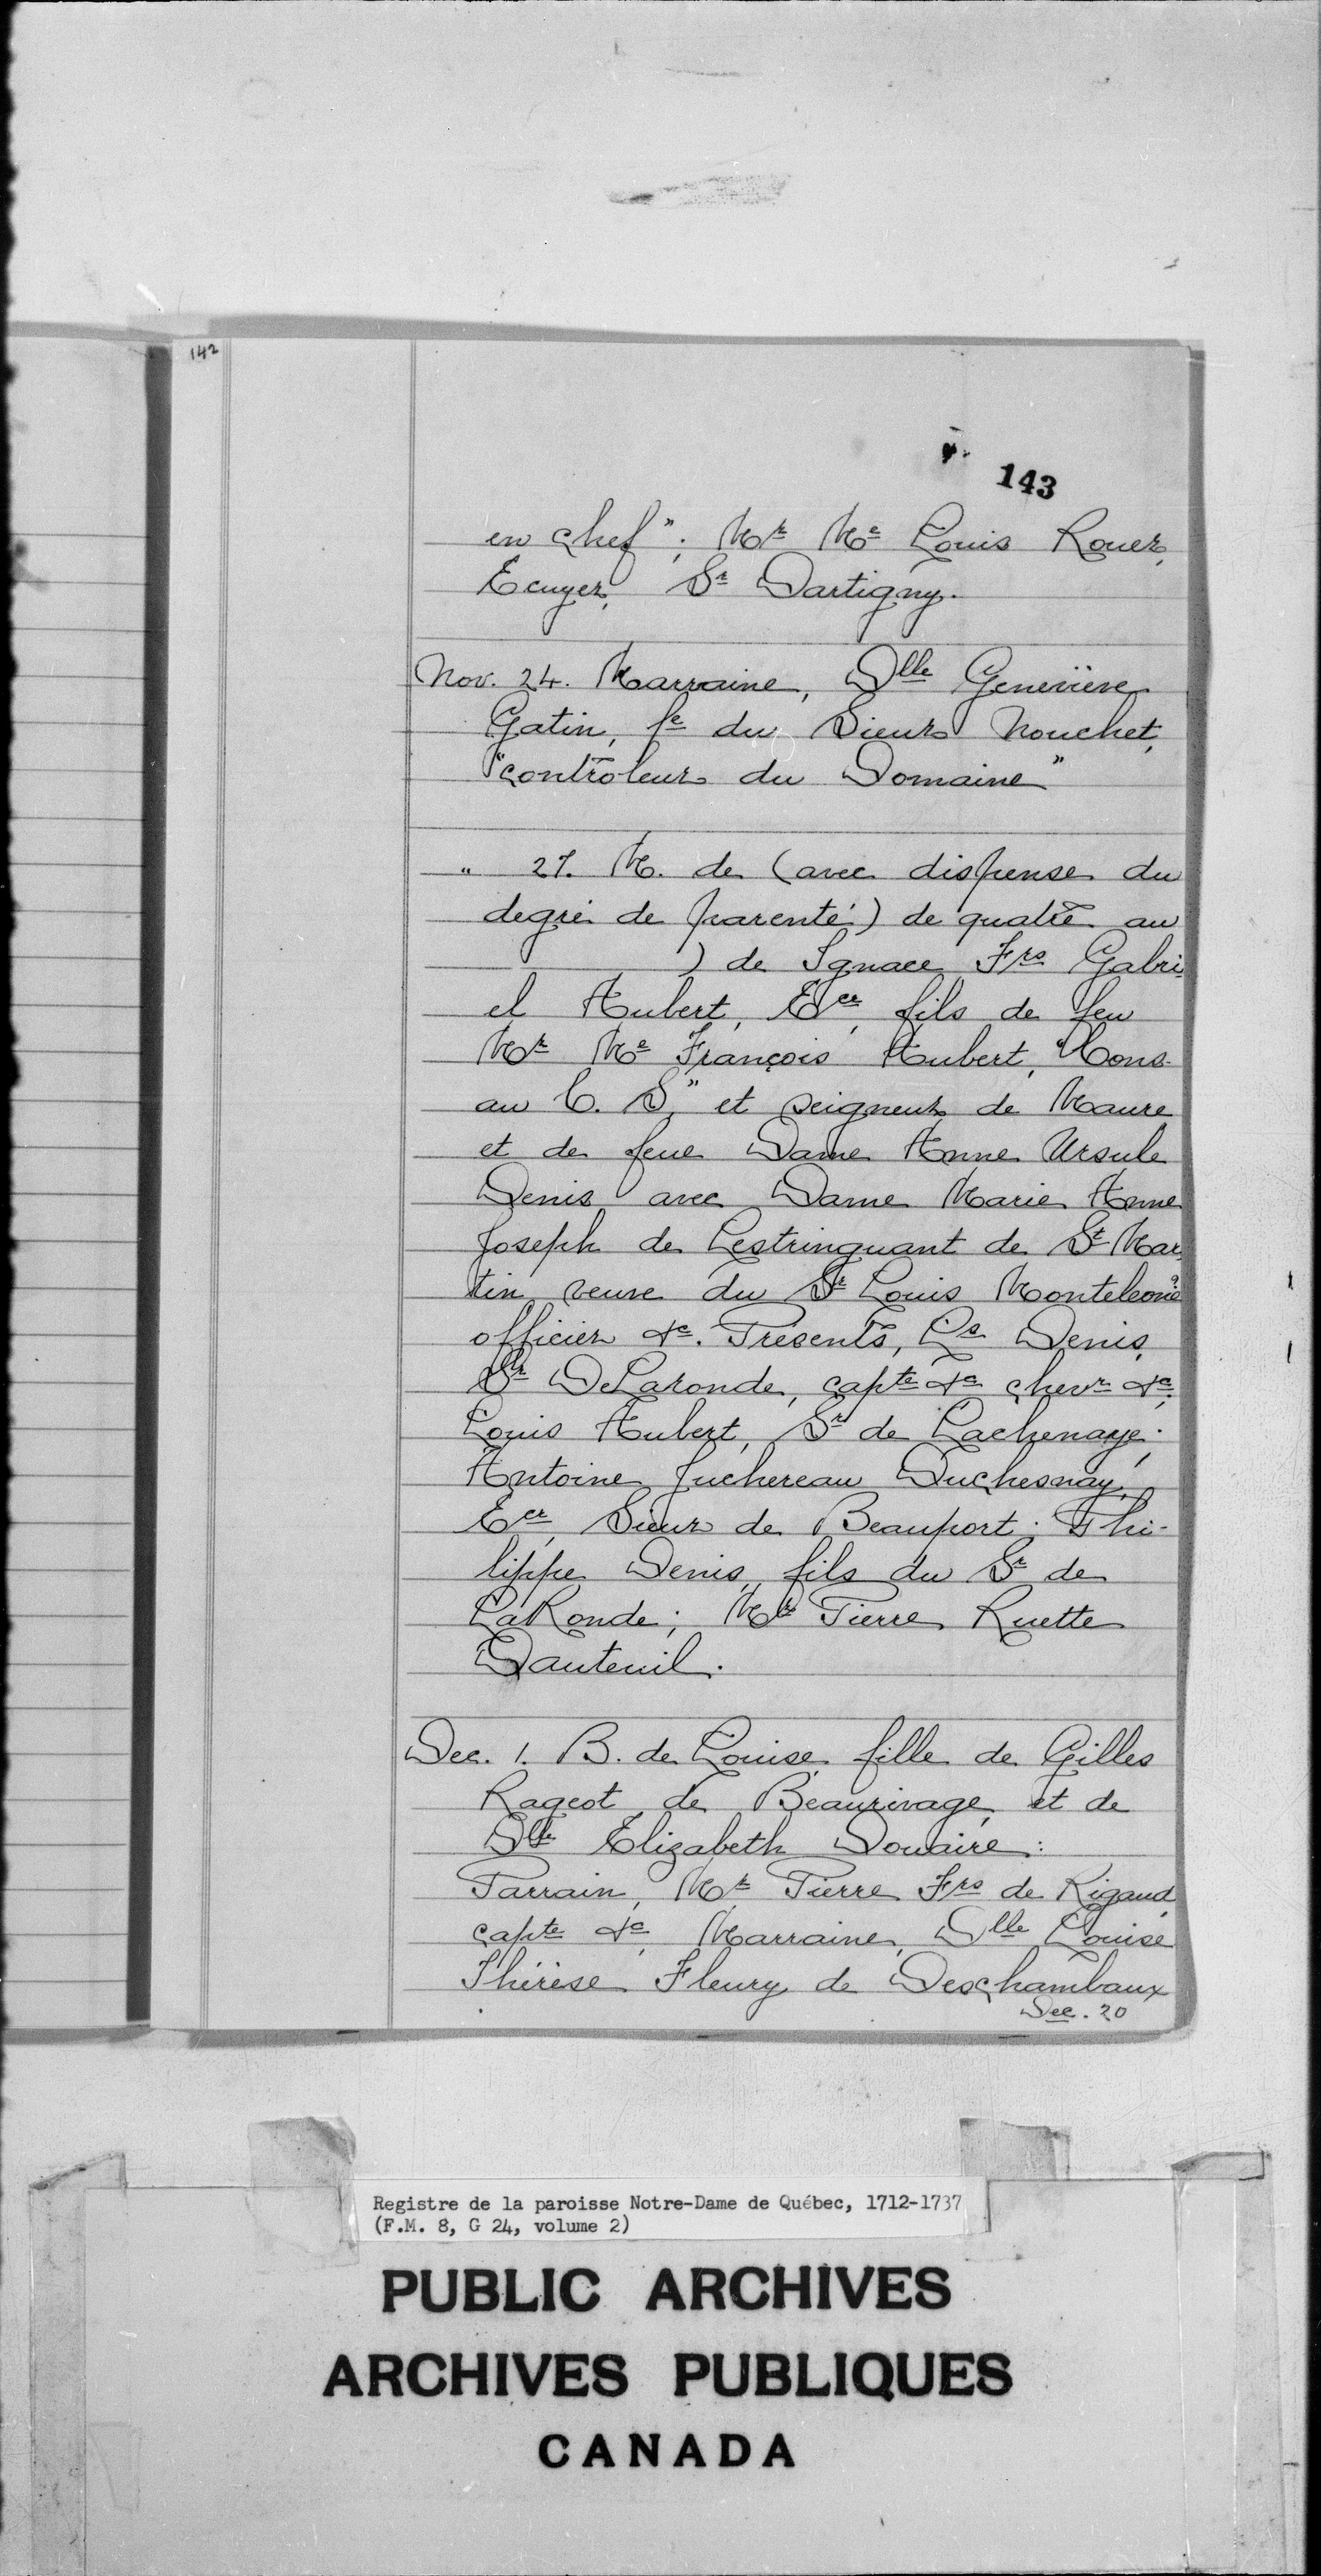 142
143
en chef"; Mr Me Louis Rouer,
Ecuyer, Sr Dartigny.
Nov. 24. Marraine, Dlle Geneviève
Gatin, fe du Sieur Nouchet,
"contrôleur du Domaine"
" 27. M. de (avec dispense du
degré de parenté) de quatre au
) de Ignace Frs Gabri-
el Aubert, Ecr, fils de feu
Mr Me François Aubert, "Cons.
au C. S," et seigneur de Maure
et de feue Dame Anne Ursule
Denis avec Dame Marie Anne
Joseph de Lestringuant de St Mar-
tin veuve du Sr Louis Monteleone
officier &c. Presents, Ls Denis,
Sr DeLaronde, capte &c chevr &c;
Louis Aubert, Sr de Lachenaye;
Antoine Juchereau Duchesnay,
Ecr, Sieur de Beauport; Phi-
lippe Denis, fils du Sr de
LaRonde; Mr Pierre Ruette
Dauteuil.
Dec. 1. B. de Louise, fille de Gilles
Rageot de Beaurivage, et de
Dlle Elizabeth Douaire:
Parrain, Mr Pierre Frs de Rigaud,
capte &c, Marraine, Dlle Louise
Thérèse Fleury de Deschambaux
Dec. 20
Registre de la paroisse Notre-Dame de Québec, 1712-1737
(F.M. 8, G 24, volume 2)
PUBLIC ARCHIVES
ARCHIVES PUBLIQUES
CANADA